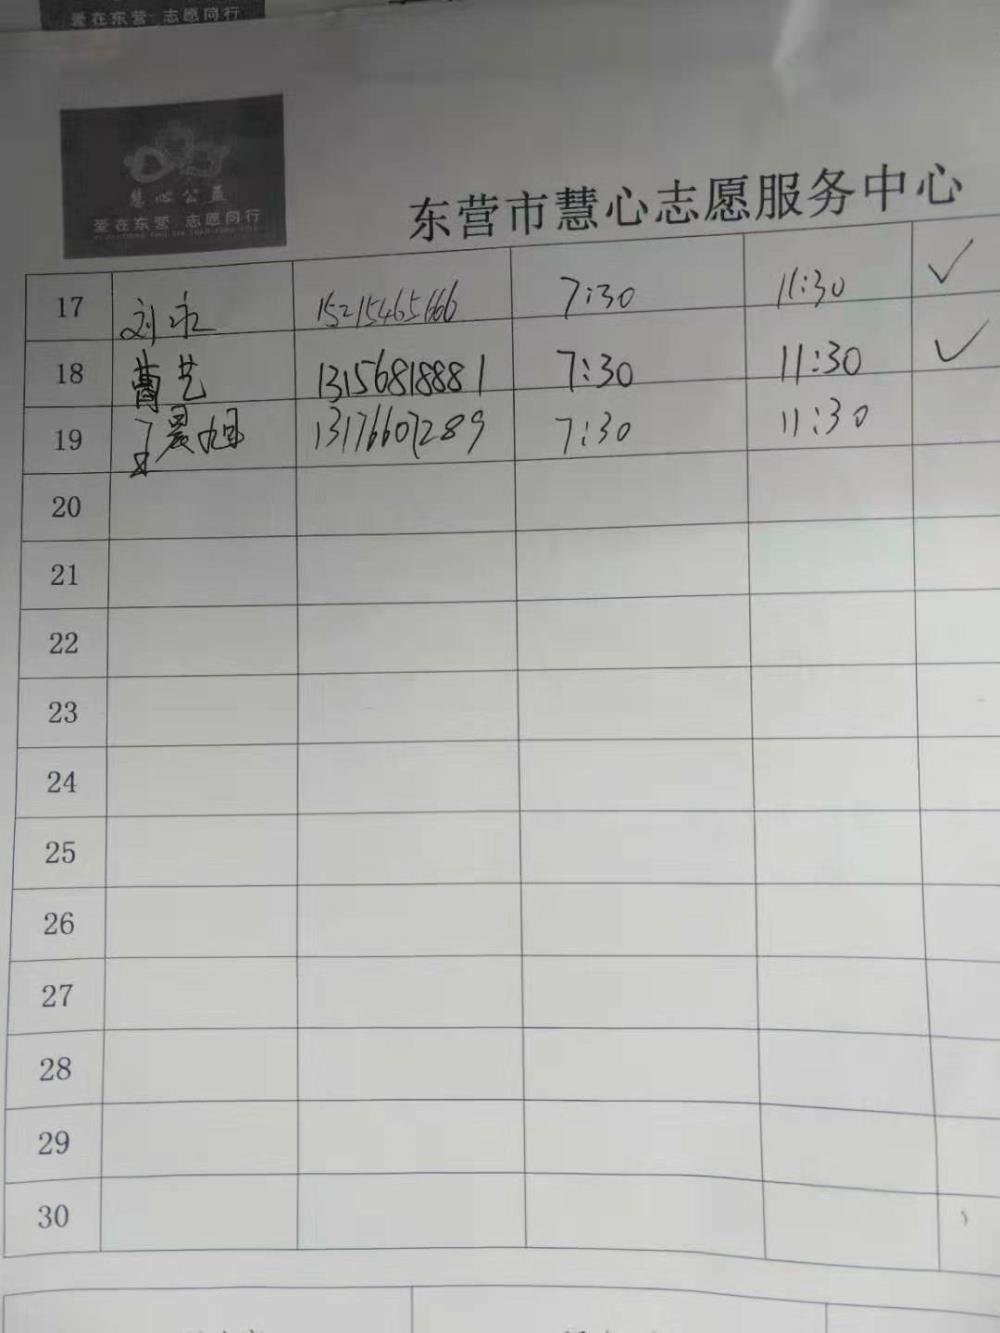 爱在东营 志愿同行
慧心公益
爱在东营 志愿同行
东营市慧心志愿服务中心
17 刘永 15215465666 7:30 11:30 ✓
18 曹艺 13156818881 7:30 11:30 ✓
19 晨旭 13176607289 7:30 11:30
20
21
22
23
24
25
26
27
28
29
30